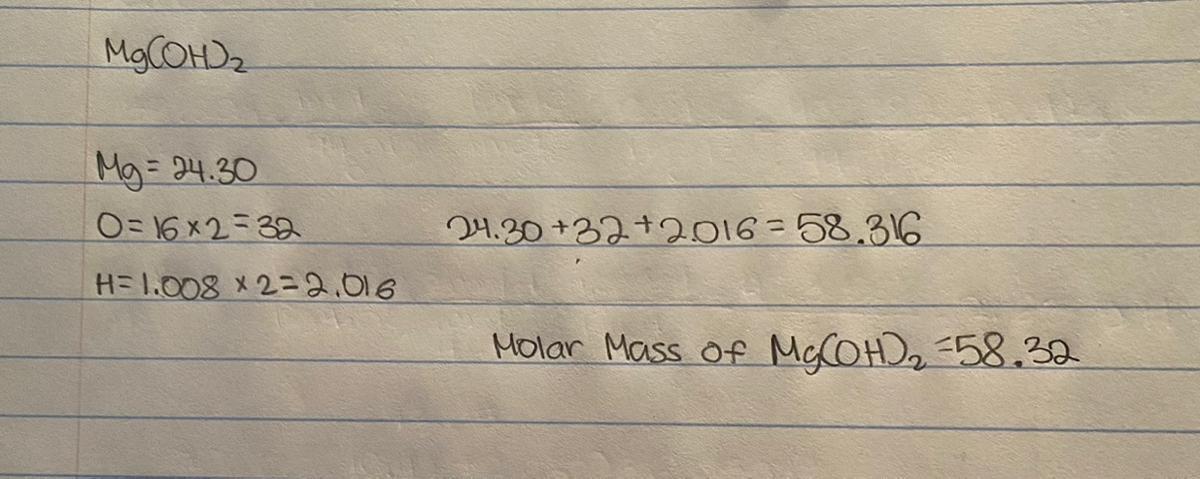 Mg(OH)2
Mg = 24.30
O = 16 x 2 = 32
24.30 + 32 + 2.016 = 58.316
H = 1.008 x 2 = 2.016
Molar Mass of Mg(OH)2 = 58.32